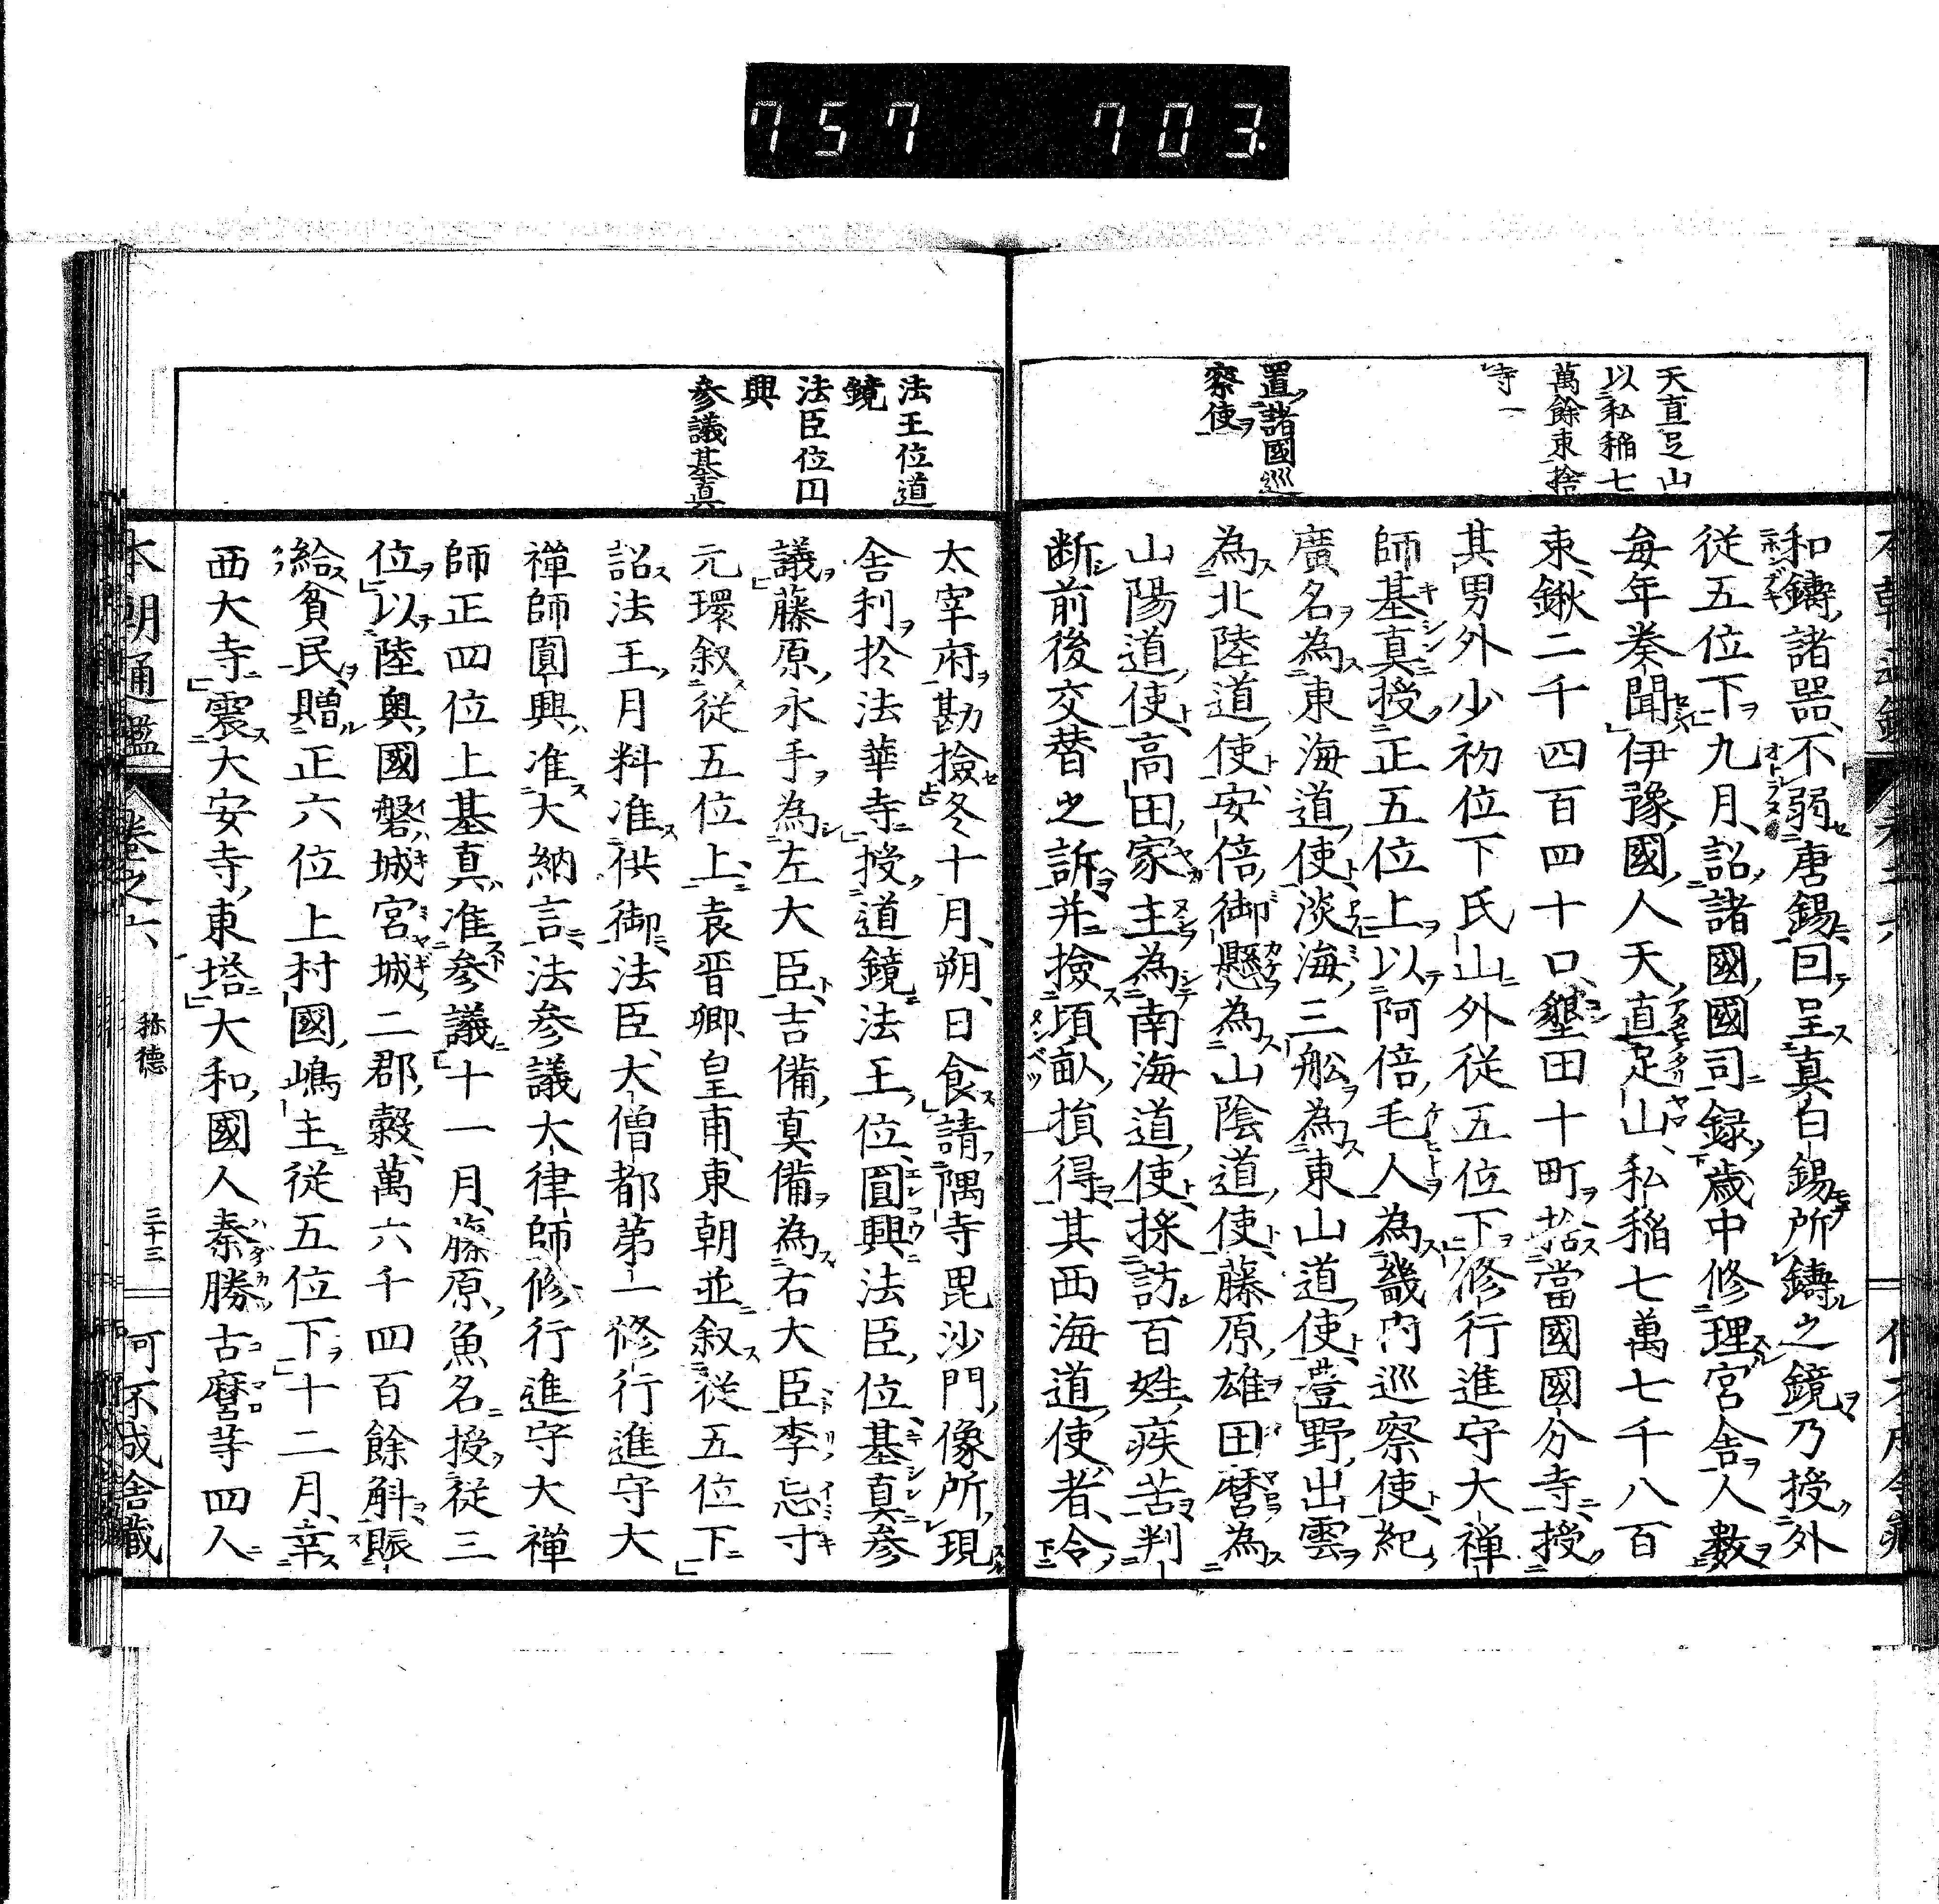 757 703
天直足山
以私稲七
萬餘束捨
寺
置諸國巡
察使
和鑄諸器不弱唐錫回呈真白錫所鑄之鏡乃授外
従五位下九月詔諸國國司録歳中修理宮舎人數
毎年奏聞伊豫國人天直足山私稲七萬七千八百
束鍬二千四百四十口墾田十町捨當國國分寺授
其男外少初位下氏山外従五位下修行進守大禅
師基真授正五位上以阿倍毛人為畿内巡察使紀
廣名為東海道使淡海三舩為東山道使豊野出雲
為北陸道使安倍御懸為山陰道使藤原雄田麿為
山陽道使高田家主為南海道使採訪百姓疾苦判
断前後交替之訴并撿頃畝損得其西海道使者令
法王位道
鏡
法臣位円
興
参議基真
太宰府勘撿冬十月朔日食請隅寺毘沙門像所現
舎利於法華寺授道鏡法王位圓興法臣位基真参
議藤原永手為左大臣吉備真備為右大臣李忌寸
元環叙従五位上袁晋卿皇甫東朝並叙従五位下
詔法王月料准供御法臣大僧都第一修行進守大
禅師圓興准大納言法参議大律師修行進守大禅
師正四位上基真准参議十一月藤原魚名授従三
位以陸奥國磐城宮城二郡穀萬六千四百餘斛賑
給貧民贈正六位上村國嶋主従五位下十二月幸
西大寺震大安寺東塔大和國人秦勝古麿等四人
本朝通鑑 巻之六 称德 三十三 可不成舎蔵